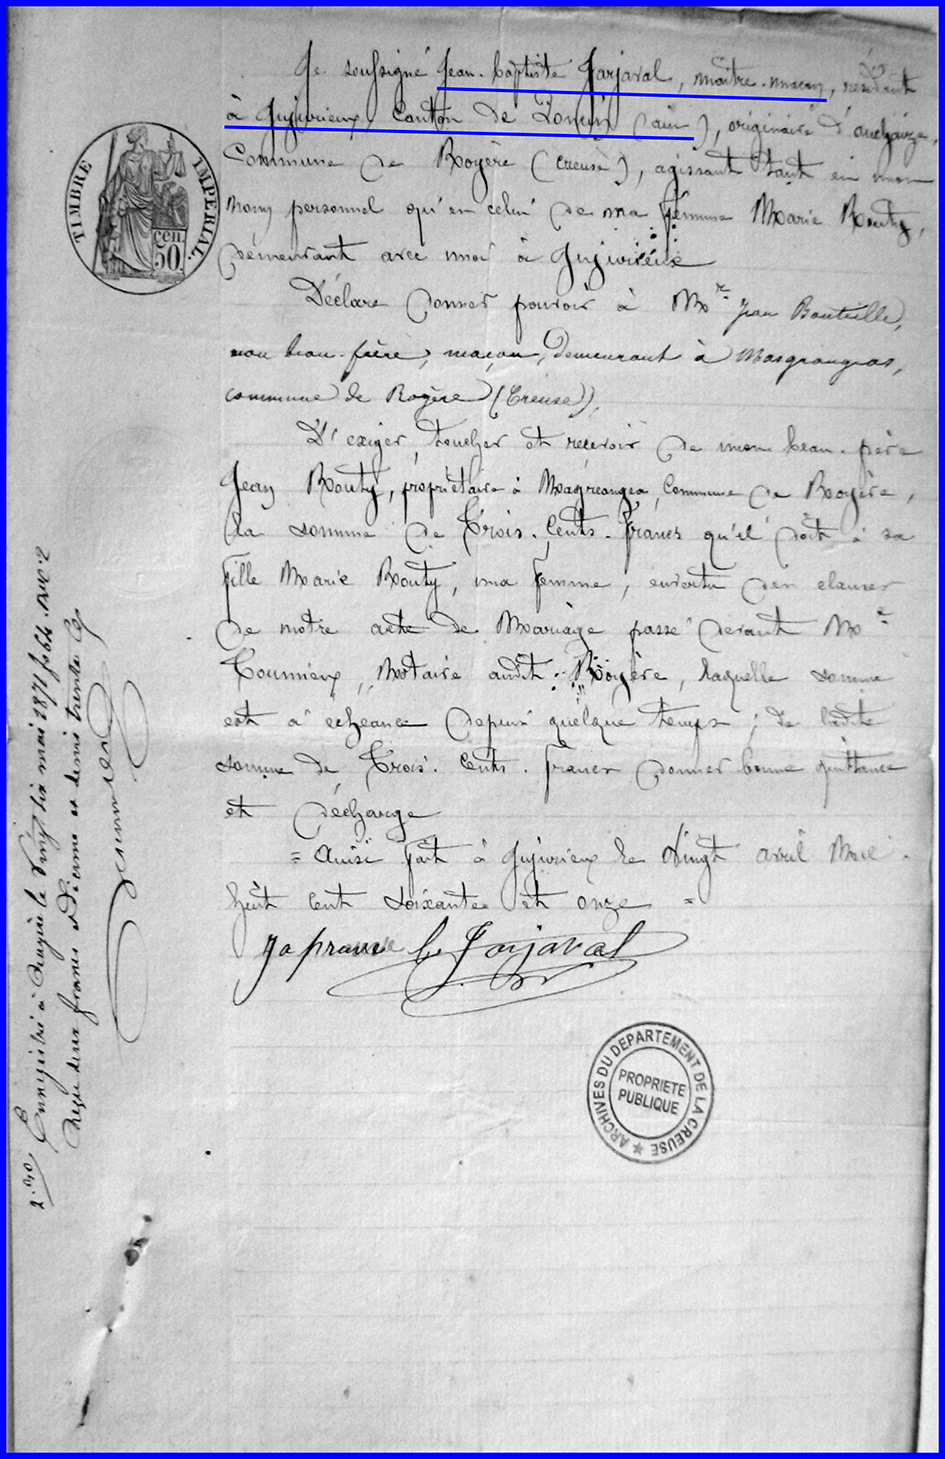 TIMBRE IMPERIAL.
50 cen.
Je soussigné Jean-baptiste Jarjaval, maître-maçon, résidant
à Jujurieux, Canton de Poncin (ain), originaire d'
Commune de Royère (Creuse), agissant tant en mon
Nom personnel qu'en celui de ma femme Marie Routy,
demeurant avec moi à Jujurieux
Déclare donner pouvoir à Mr Jean Bouteille,
mon beau-frère, maçon, demeurant à Masgrangeas,
commune de Royère (Creuse),
D'exiger, toucher et recevoir de mon beau-père
Jean Routy, propriétaire à Magrangea, Commune de Royère,
La somme de Trois-Cents-francs qu'il doit à sa
fille Marie Routy, ma femme, envertu des clauses
de notre acte de Mariage passé devant Me
Toumieux, Notaire audit Royère, laquelle somme
est à échéance depuis quelque temps ; de ladite
somme de Trois-Cents-francs donner bonne quittance
et décharge
= Ainsi fait à Jujurieux le Vingt avril Mil-
huit cent soixante et onze =
Japrauve Jarjaval
ARCHIVES DU DEPARTEMENT DE LA CREUSE
PROPRIETE
PUBLIQUE
Enregistré à Royère le Vingt six mai 1871 folio
Reçu deux francs et décime et demi trente cs